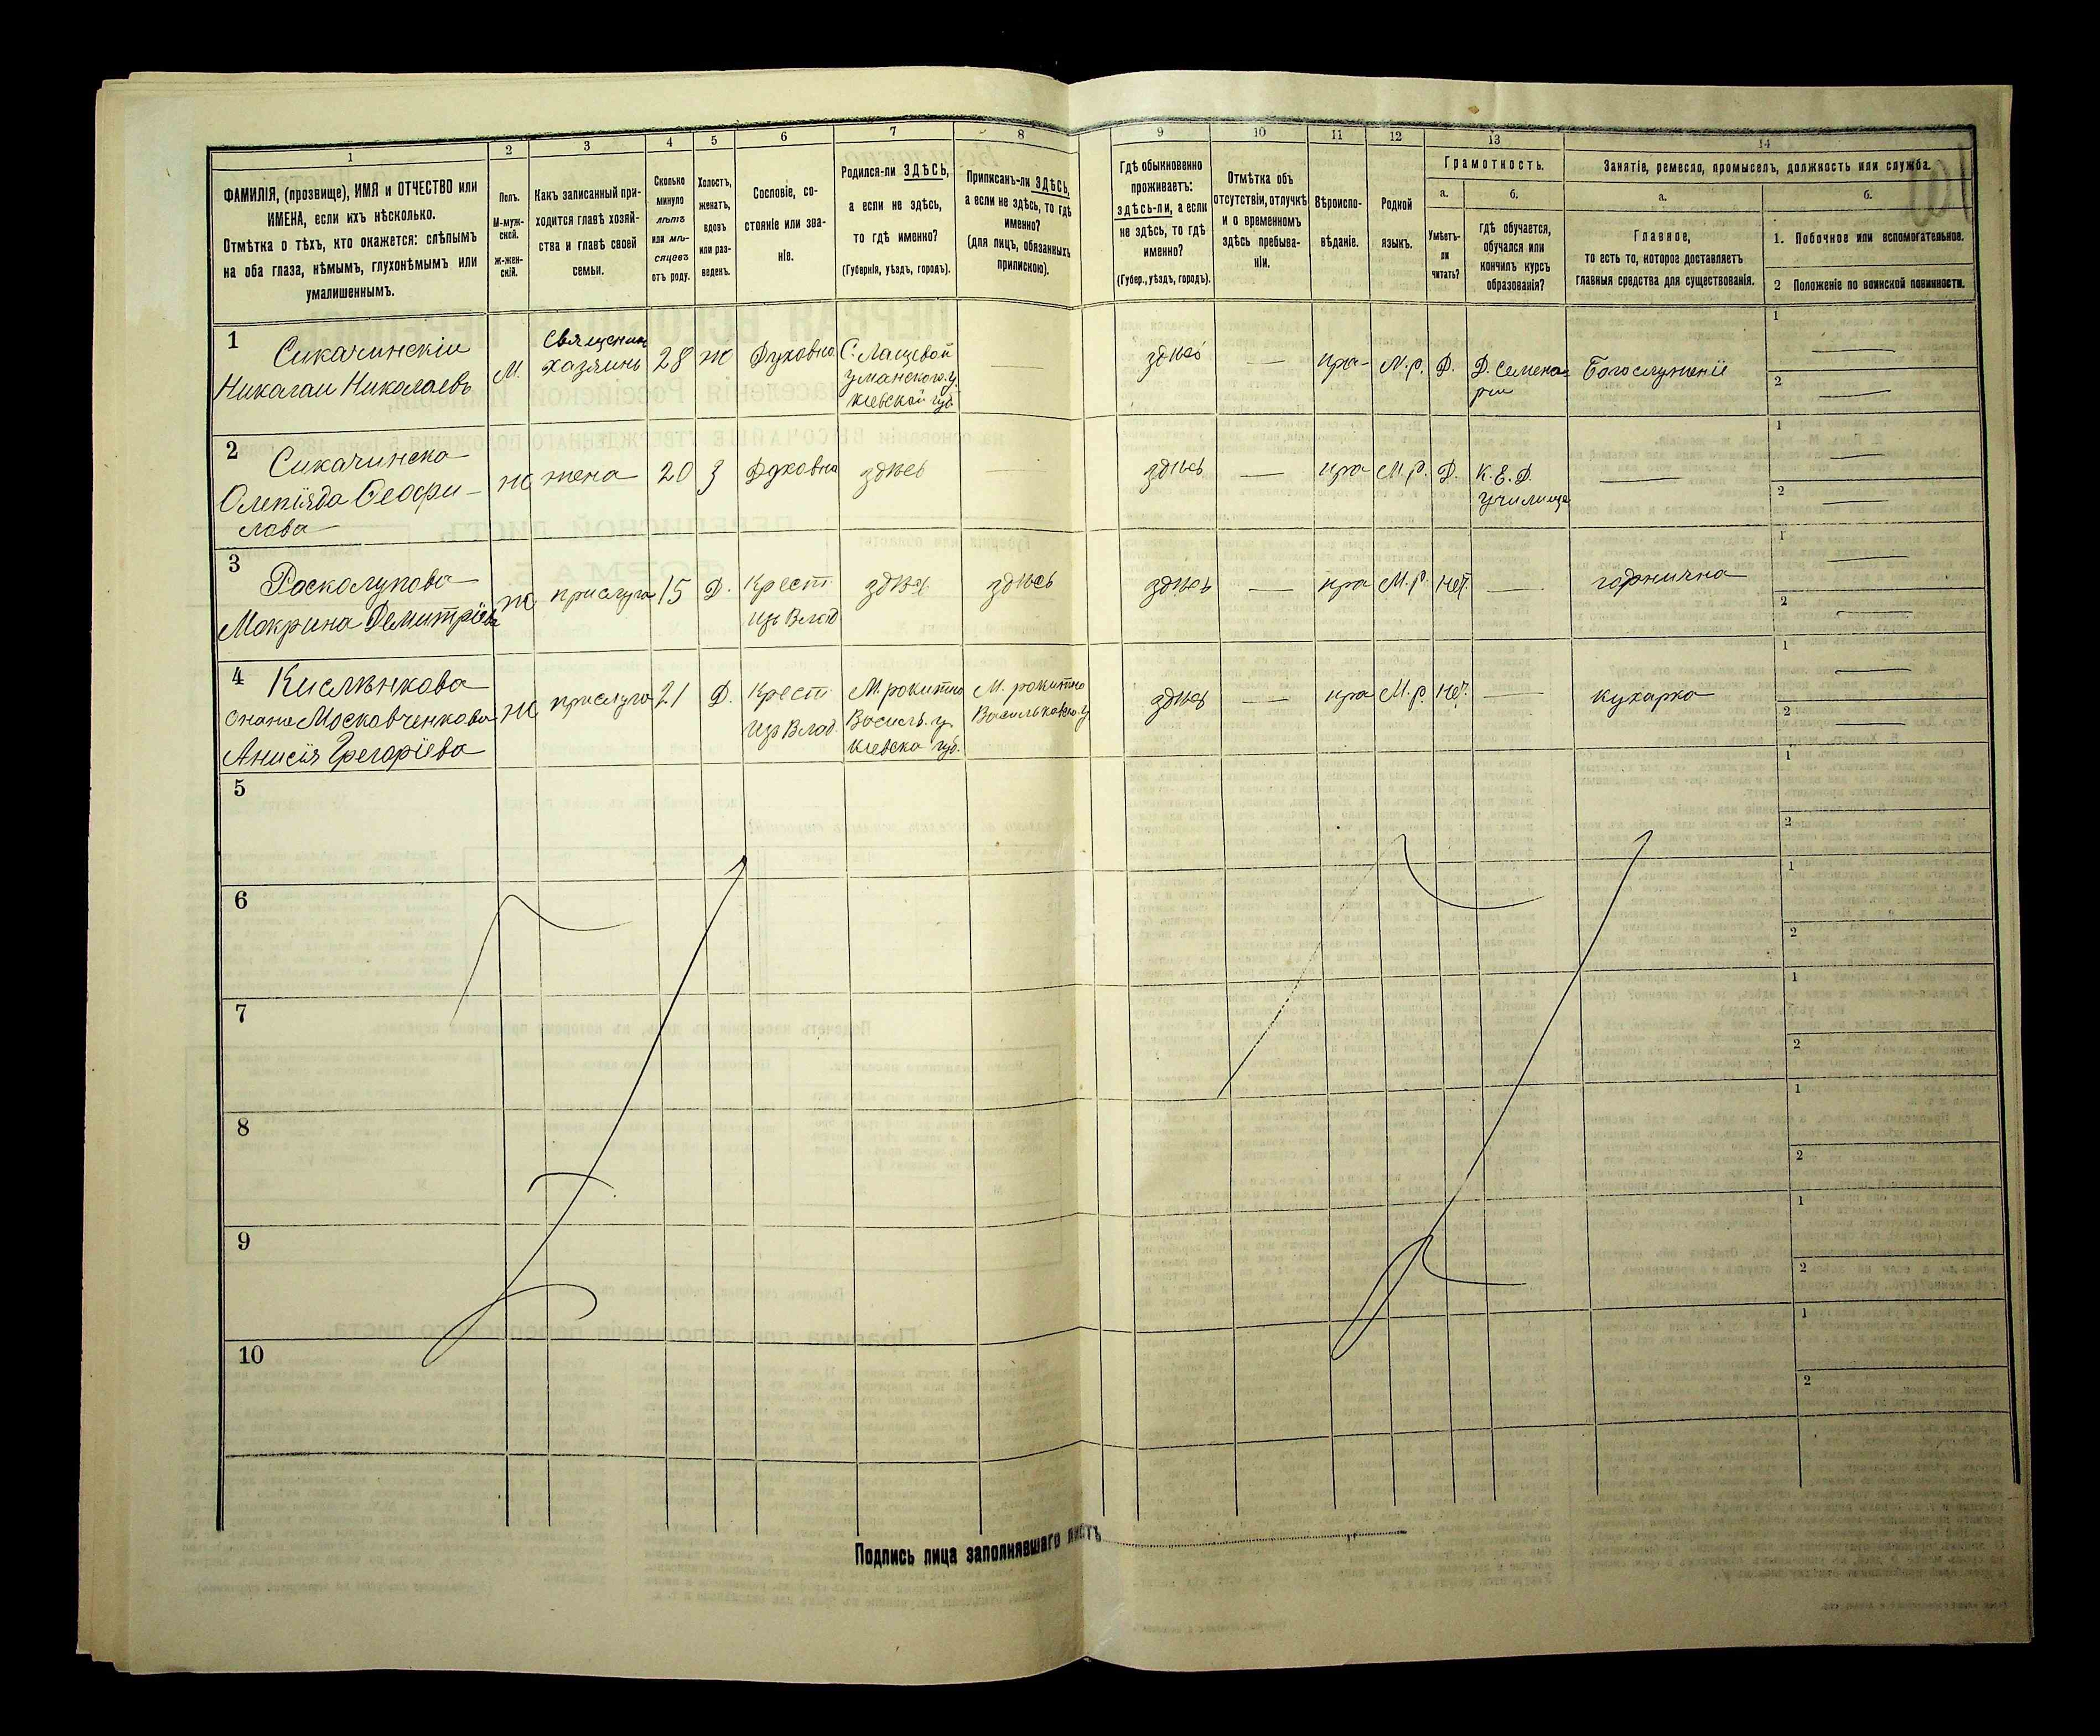 1
2
3
4
5
6
7
8
9
10
11
12
13
14
ФАМИЛІЯ, (прозвище), ИМЯ и ОТЧЕСТВО или
ИМЕНА, если ихъ нѣсколько.
Отмѣтка о тѣхъ, кто окажется: слѣпымъ
на оба глаза, нѣмымъ, глухонѣмымъ или
умалишеннымъ.
Полъ.
М-муж-
ской.
ж-жен-
скій.
Какъ записанный при-
ходится главѣ хозяй-
ства и главѣ своей
семьи.
Сколько
минуло
лѣтъ
или мѣ-
сяцевъ
отъ роду.
Холостъ,
женатъ,
вдовъ
или раз-
веденъ.
Сословіе, со-
стояніе или зва-
ніе.
Родился-ли ЗДѢСЬ,
а если не здѣсь,
то гдѣ именно?
(Губернія, уѣздъ, городъ).
Приписанъ-ли ЗДѢСЬ,
а если не здѣсь, то гдѣ
именно?
(для лицъ, обязанныхъ
припискою).
Гдѣ обыкновенно
проживаетъ:
здѣсь-ли, а если
не здѣсь, то гдѣ
именно?
(Губер., уѣздъ, городъ).
Отмѣтка объ
отсутствіи, отлучкѣ
и о временномъ
здѣсь пребыва-
ніи.
Вѣроиспо-
вѣданіе.
Родной
языкъ.
Грамотность.
а.
б.
Умѣетъ-
ли
читать?
гдѣ обучается,
обучался или
кончилъ курсъ
образованія?
Занятіе, ремесло, промыселъ, должность или служба.
а.
б.
Главное,
то есть то, которое доставляетъ
главныя средства для существованія.
1. Побочное или вспомогательное.
2 Положеніе по воинской повинности.
1
Сикачинскіи
Николаи Николаевъ
М.
Священик
Хазяинъ
28
ж
Духовно
С. Лащевой
Уманского у.
Кіевской губ.
здѣсь
пра-
М.р.
Д.
Д. Семена-
рии
Богослуженіе
1
2
2
Сикачинска
Олепіяда Ѳеофи-
лова
ж
жена
20
З
Духовна
здѣсь
здѣсь
пра
М.р.
Д.
К. Е. Д.
училище
1
2
3
Росколупова
Мокрина Демитріева
ж
прислуга
15
Д.
Крест
Изъ Влад
здѣсь
здѣсь
здѣсь
пра
М.р.
Нет.
горнична
1
2
4
Кислѣнкова
онаже Московченкова
Анисія Грегоріева
ж
прислуга
21
Д.
Крест
Изъ Влад.
М. рокитно
Василь. у.
Кіевска губ.
М. рокитно
Васильковско. у
здѣсь
пра
М.р.
Нет.
кухарка
1
2
5
1
2
6
1
2
7
1
2
8
1
2
9
1
2
10
1
2
Подпись лица заполнявшаго листъ